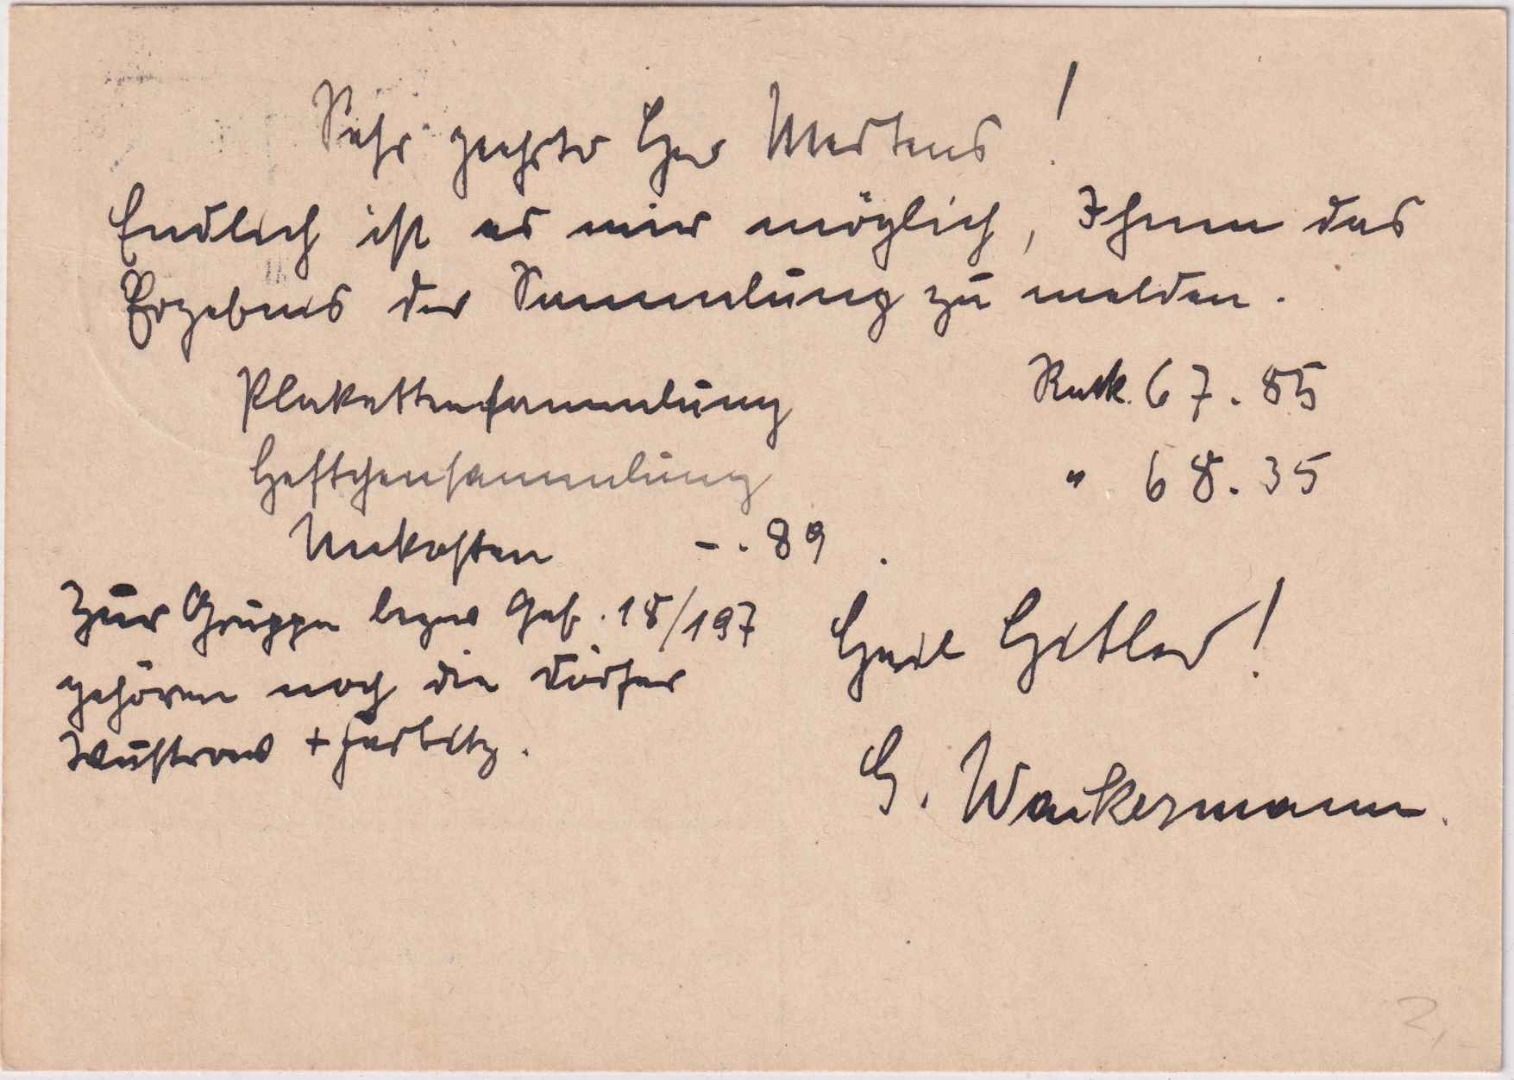 Sehr geehrter Herr Mertens!
Endlich ist es mir möglich, Ihnen das
Ergebnis der Sammlung zu melden.
Plakettensammlung Rmk. 67.85
Heftchensammlung " 68.35
Unkosten -.89.
Zur Gruppe bezw Gef. 18/197
gehören noch die Dörfer
Wustrow +
Heil Hitler!
G. Wackermann.